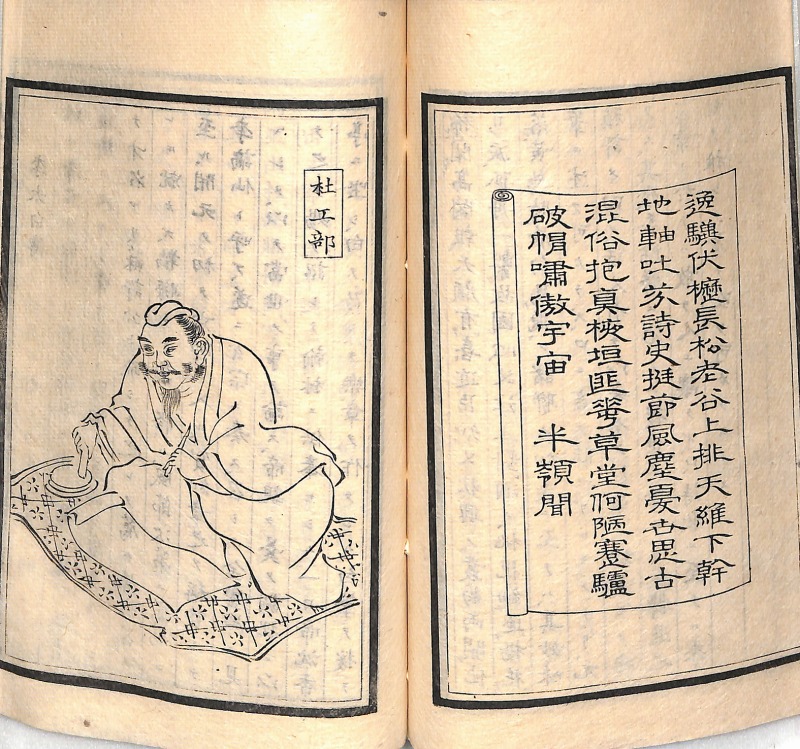 逸驥伏櫪長松老谷上排天維下幹
地軸吐茲詩史挺節風塵憂世思古
混俗抱真掖垣匪華草堂何陋蹇驢
破帽嘯傲宇宙 半嶺聞
杜工部